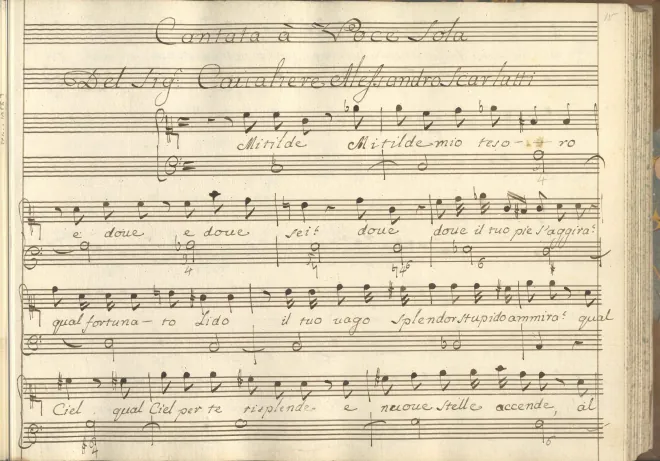 Cantata à Voce Sola
Del Sig.r Caualiere Alessandro Scarlatti
Mitilde Mitilde mio teso - ro
e doue e doue sei? doue doue il tuo piè s'aggira?
qual fortuna - to Lido il tuo uago splendor stupido ammira? qual
Ciel qual Ciel per te risplende e nuoue stelle accende, al